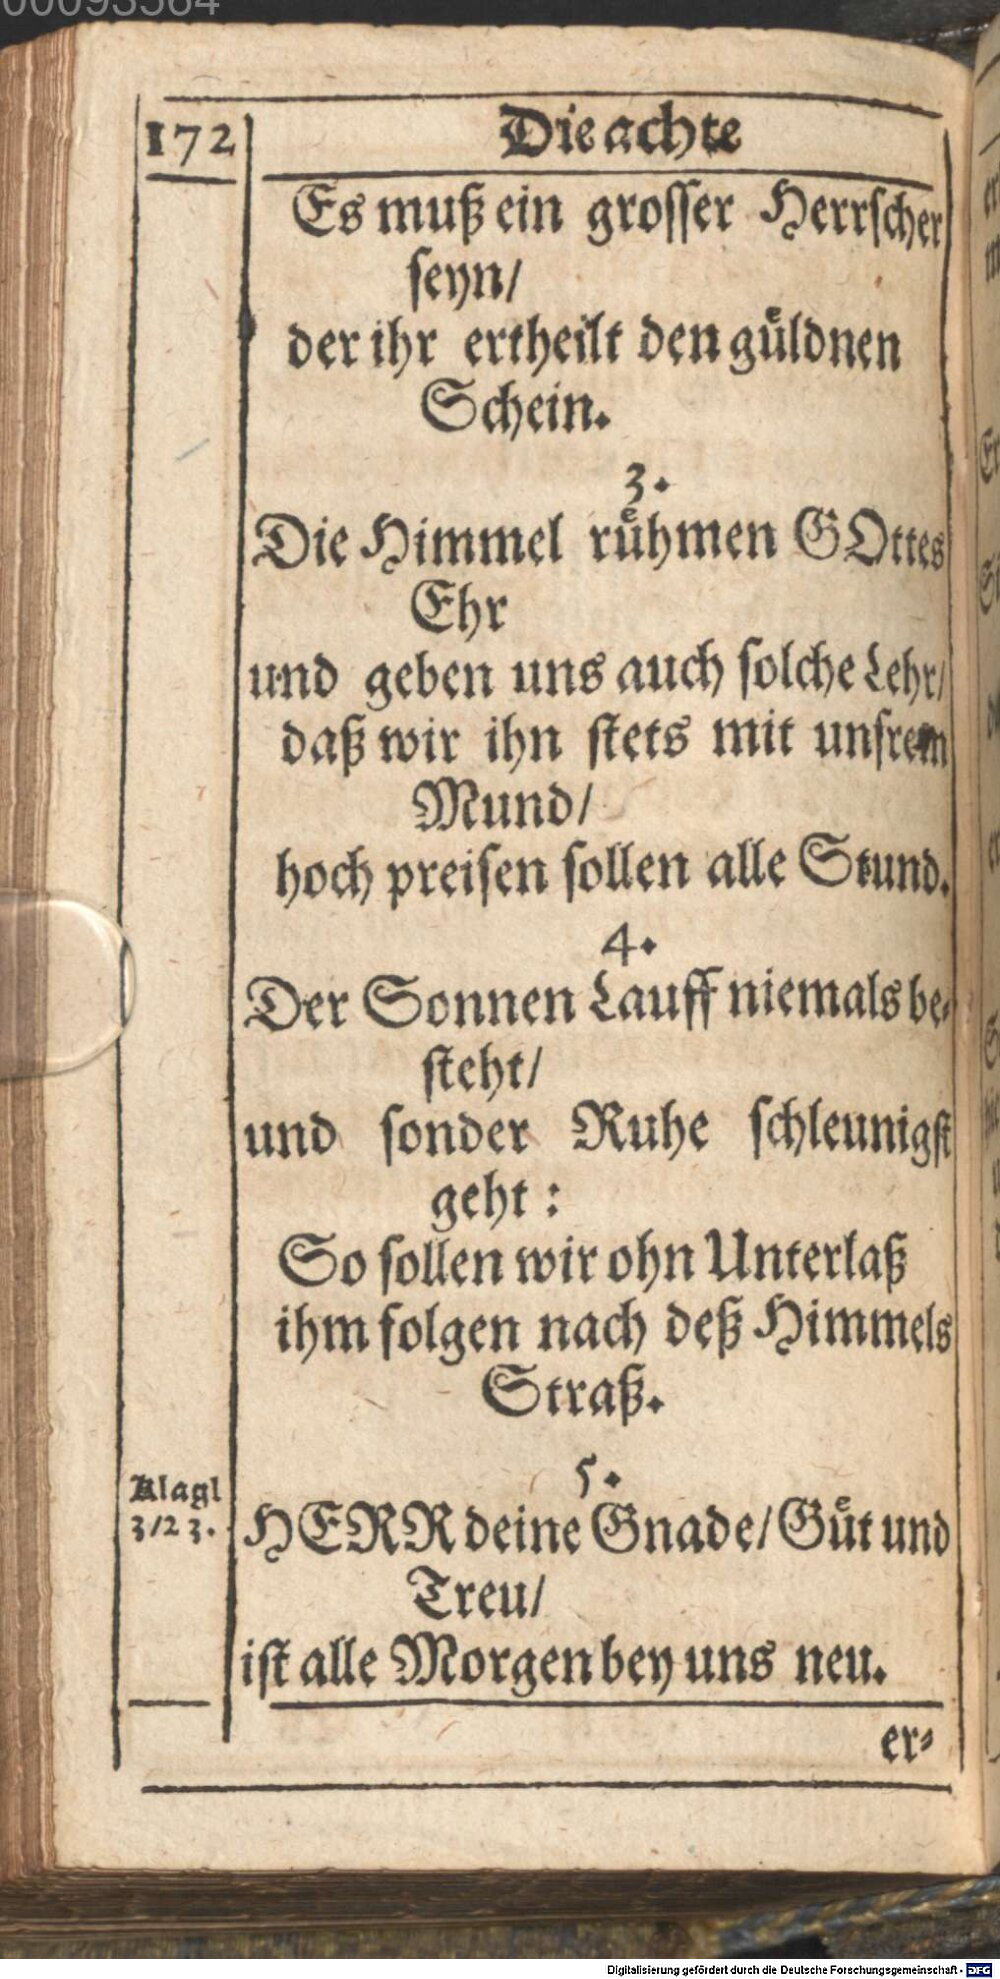 172
Die achte
Es muß ein grosser Herrscher
seyn/
der ihr ertheilt den guͤldnen
Schein.
3.
Die Himmel ruͤhmen GOttes
Ehr
und geben uns auch solche Lehr/
daß wir ihn stets mit unsrem
Mund/
hoch preisen sollen alle Stund.
4.
Der Sonnen Lauff niemals be-
steht/
und sonder Ruhe schleunigst
geht:
So sollen wir ohn Unterlaß
ihm folgen nach deß Himmels
Straß.
5.
Klagl
3/23.
HERR deine Gnade/Guͤt und
Treu/
ist alle Morgen bey uns neu.
er-
Digitalisierung gefördert durch die Deutsche Forschungsgemeinschaft - DFG